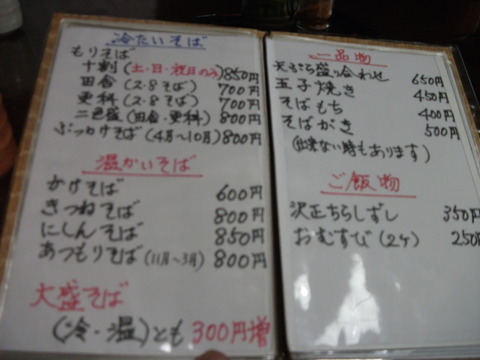 冷たいそば
もりそば
十割(土・日・祝日のみ)850円
田舎(2・8そば) 700円
更科(2・8そば) 700円
二色盛(田舎・更科) 800円
ぶっかけそば(4月〜10月)800円
温かいそば
かけそば 600円
きつねそば 800円
にしんそば 850円
あつもりそば(11月〜3月) 800円
大盛そば
(冷・温)とも 300円増
一品物
天ぷら盛り合わせ 650円
玉子焼き 450円
そばもち 400円
そばがき 500円
(出来ない時もあります)
ご飯物
沢正ちらしずし 350円
おむすび(2ケ) 250円